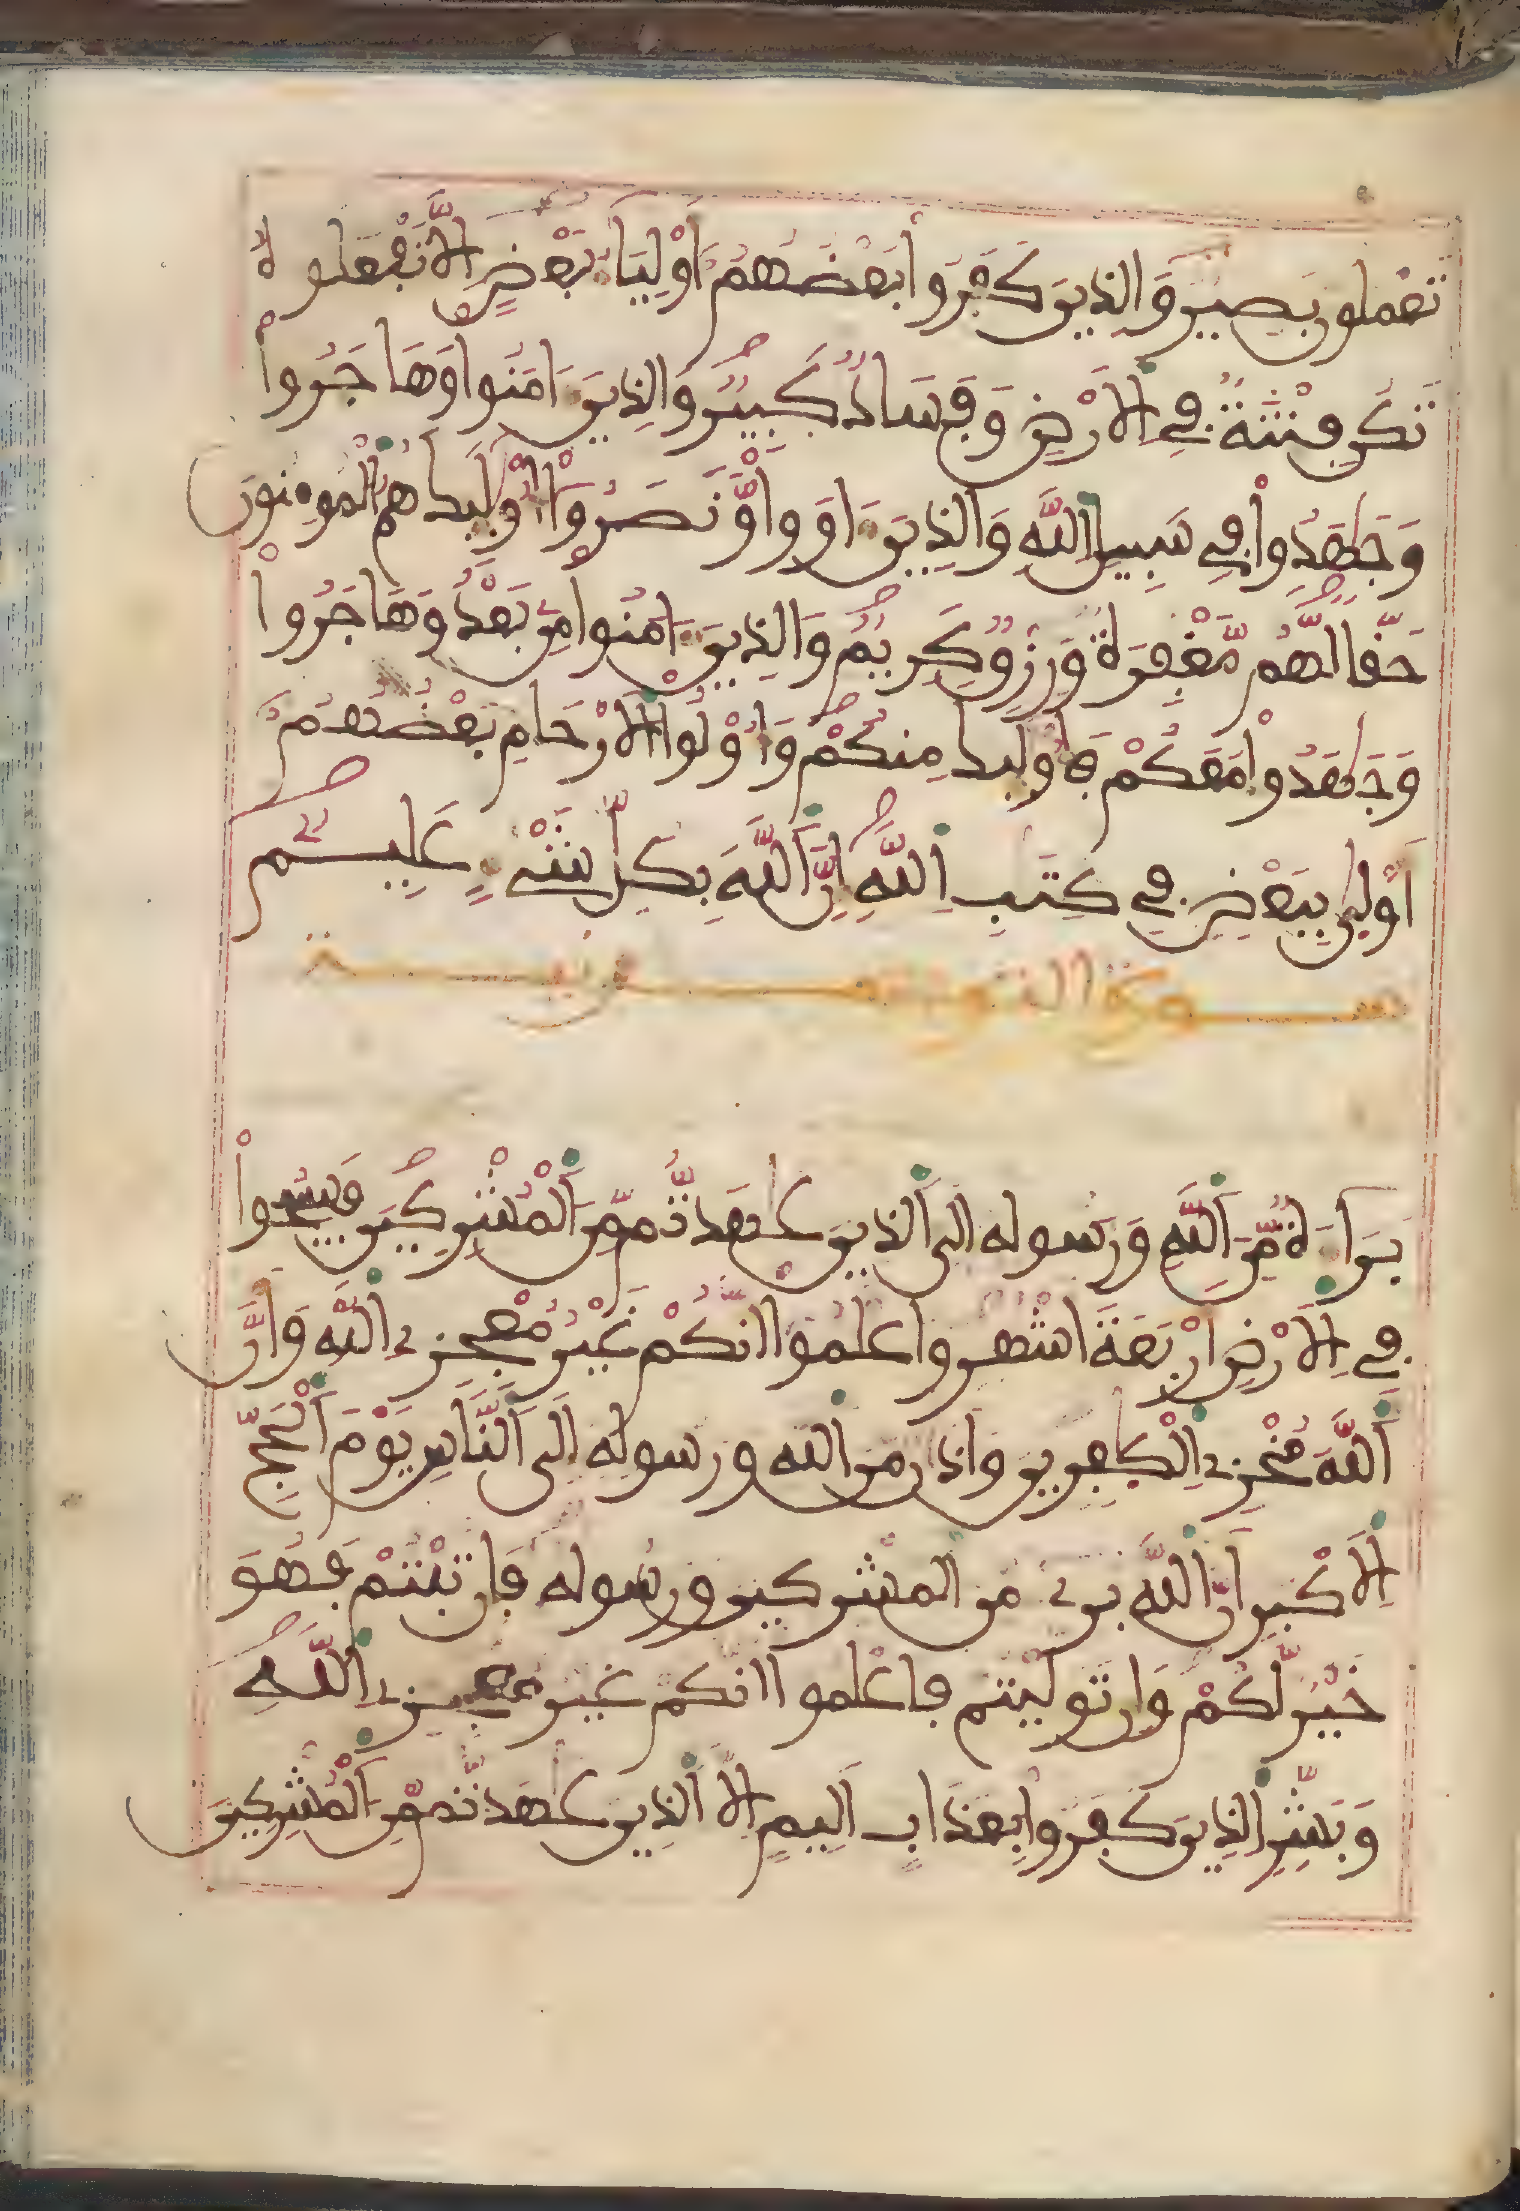 تَعْمَلُونَ بَصِيرٌ وَالذِينَ كَفَرُوا بَعْضُهُمُ أَوْلِيَاءُ بَعْضٍ اِلَّا تَفْعَلُوهُ
تَكُن فِتْنَةٌ فِي اِلَارْضِ وَفَسَادٌ كَبِيرٌ وَالذِينَ ءَامَنُوا وَهَاجَرُوا
وَجَٰهَدُوا فِي سَبِيلِ اِللَّهِ وَالذِينَ ءَاوَوا وَّنَصَرُوا أُوْلَٰئِكَ هُمُ الْمُومِنُونَ
حَقّا لَّهُم مَّغْفِرَةٌ وَرِزْقٌ كَرِيمٌ وَالذِينَ ءَامَنُوا مِنۢ بَعْدُ وَهَاجَرُوا
وَجَٰهَدُوا مَعَكُمْ فَأُوْلَٰئِكَ مِنكُمْ وَأُوْلُوا الَارْحَامِ بَعْضُهُمُ
أَوْلَىٰ بِبَعْضٍ فِي كِتَٰبِ اِللَّهِ إِنَّ اَللَّهَ بِكُلِّ شَيْءٍ عَلِيمٌ
سورة التوبة
بَرَاءَةٌ مِّنَ اَللَّهِ وَرَسُولِهِ إِلَى اَلذِينَ عَٰهَدتُّم مِّنَ اَلْمُشْرِكِينَ فَسِيحُوا
فِي اِلَارْضِ أَرْبَعَةَ أَشْهُرٍ وَاعْلَمُوا أَنَّكُمْ غَيْرُ مُعْجِزِي اِللَّهِ وَأَنَّ
اَللَّهَ مُخْزِي اِلْكَٰفِرِينَ وَأَذَٰنٌ مِّنَ اَللَّهِ وَرَسُولِهِ إِلَى اَلنَّاسِ يَوْمَ اَلْحَجِّ
اِلَاكْبَرِ أَنَّ اَللَّهَ بَرِيءٌ مِّنَ اَلْمُشْرِكِينَ وَرَسُولُهُ فَإِن تُبْتُمْ فَهُوَ
خَيْرٌ لَّكُمْ وَإِن تَوَلَّيْتُمْ فَاعْلَمُوا أَنَّكُمْ غَيْرُ مُعْجِزِي اِللَّهِ
وَبَشِّرِ اِلذِينَ كَفَرُوا بِعَذَابٍ أَلِيمٍ إِلَّا اَلذِينَ عَٰهَدتُّم مِّنَ اَلْمُشْرِكِينَ